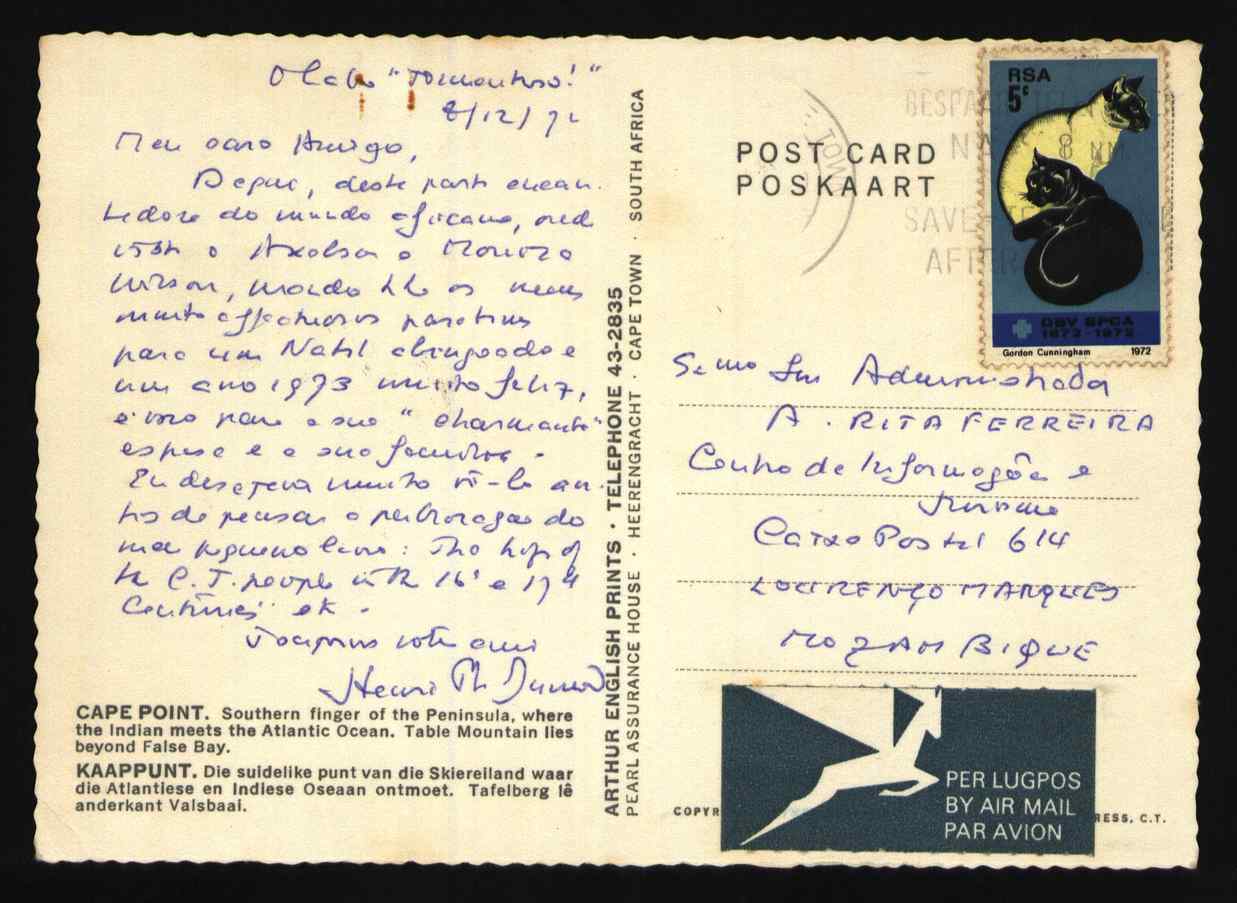 O Cabo "Tormentoso!"
8/12/72
Meu caro Amigo,
Daqui, desta parte encan-
tadora do mundo africano, onde
o
Wilson, mando-lhe os meus
muito affectuosos
para um Natal abençoado e
um ano 1973 muito feliz,
e isso para a sua "charmante"
esposa e a sua família.
Eu desejava muito vê-lo an-
tes de pensar a publicação do
meu pequeno livro: The
the C.T. people in the 16th e 17th
Centuries etc.
Toujours votre ami
Henri Ph. Junod
CAPE POINT. Southern finger of the Peninsula, where
the Indian meets the Atlantic Ocean. Table Mountain lies
beyond False Bay.
KAAPPUNT. Die suidelike punt van die Skiereiland waar
die Atlantiese en Indiese Oseaan ontmoet. Tafelberg lê
anderkant Valsbaai.
ARTHUR ENGLISH PRINTS · TELEPHONE 43-2835
PEARL ASSURANCE HOUSE · HEERENGRACHT · CAPE TOWN · SOUTH AFRICA
POST CARD
POSKAART
RSA
5c
DBV SPCA
1872-1972
Gordon Cunningham 1972
NA 8 NM
SAVE
AFTER
Administrador
A. RITA FERREIRA
Centro de Informação e
Turismo
Caixa Postal 614
LOURENÇO MARQUES
MOZAMBIQUE
PER LUGPOS
BY AIR MAIL
PAR AVION
COPYR
RESS, C.T.